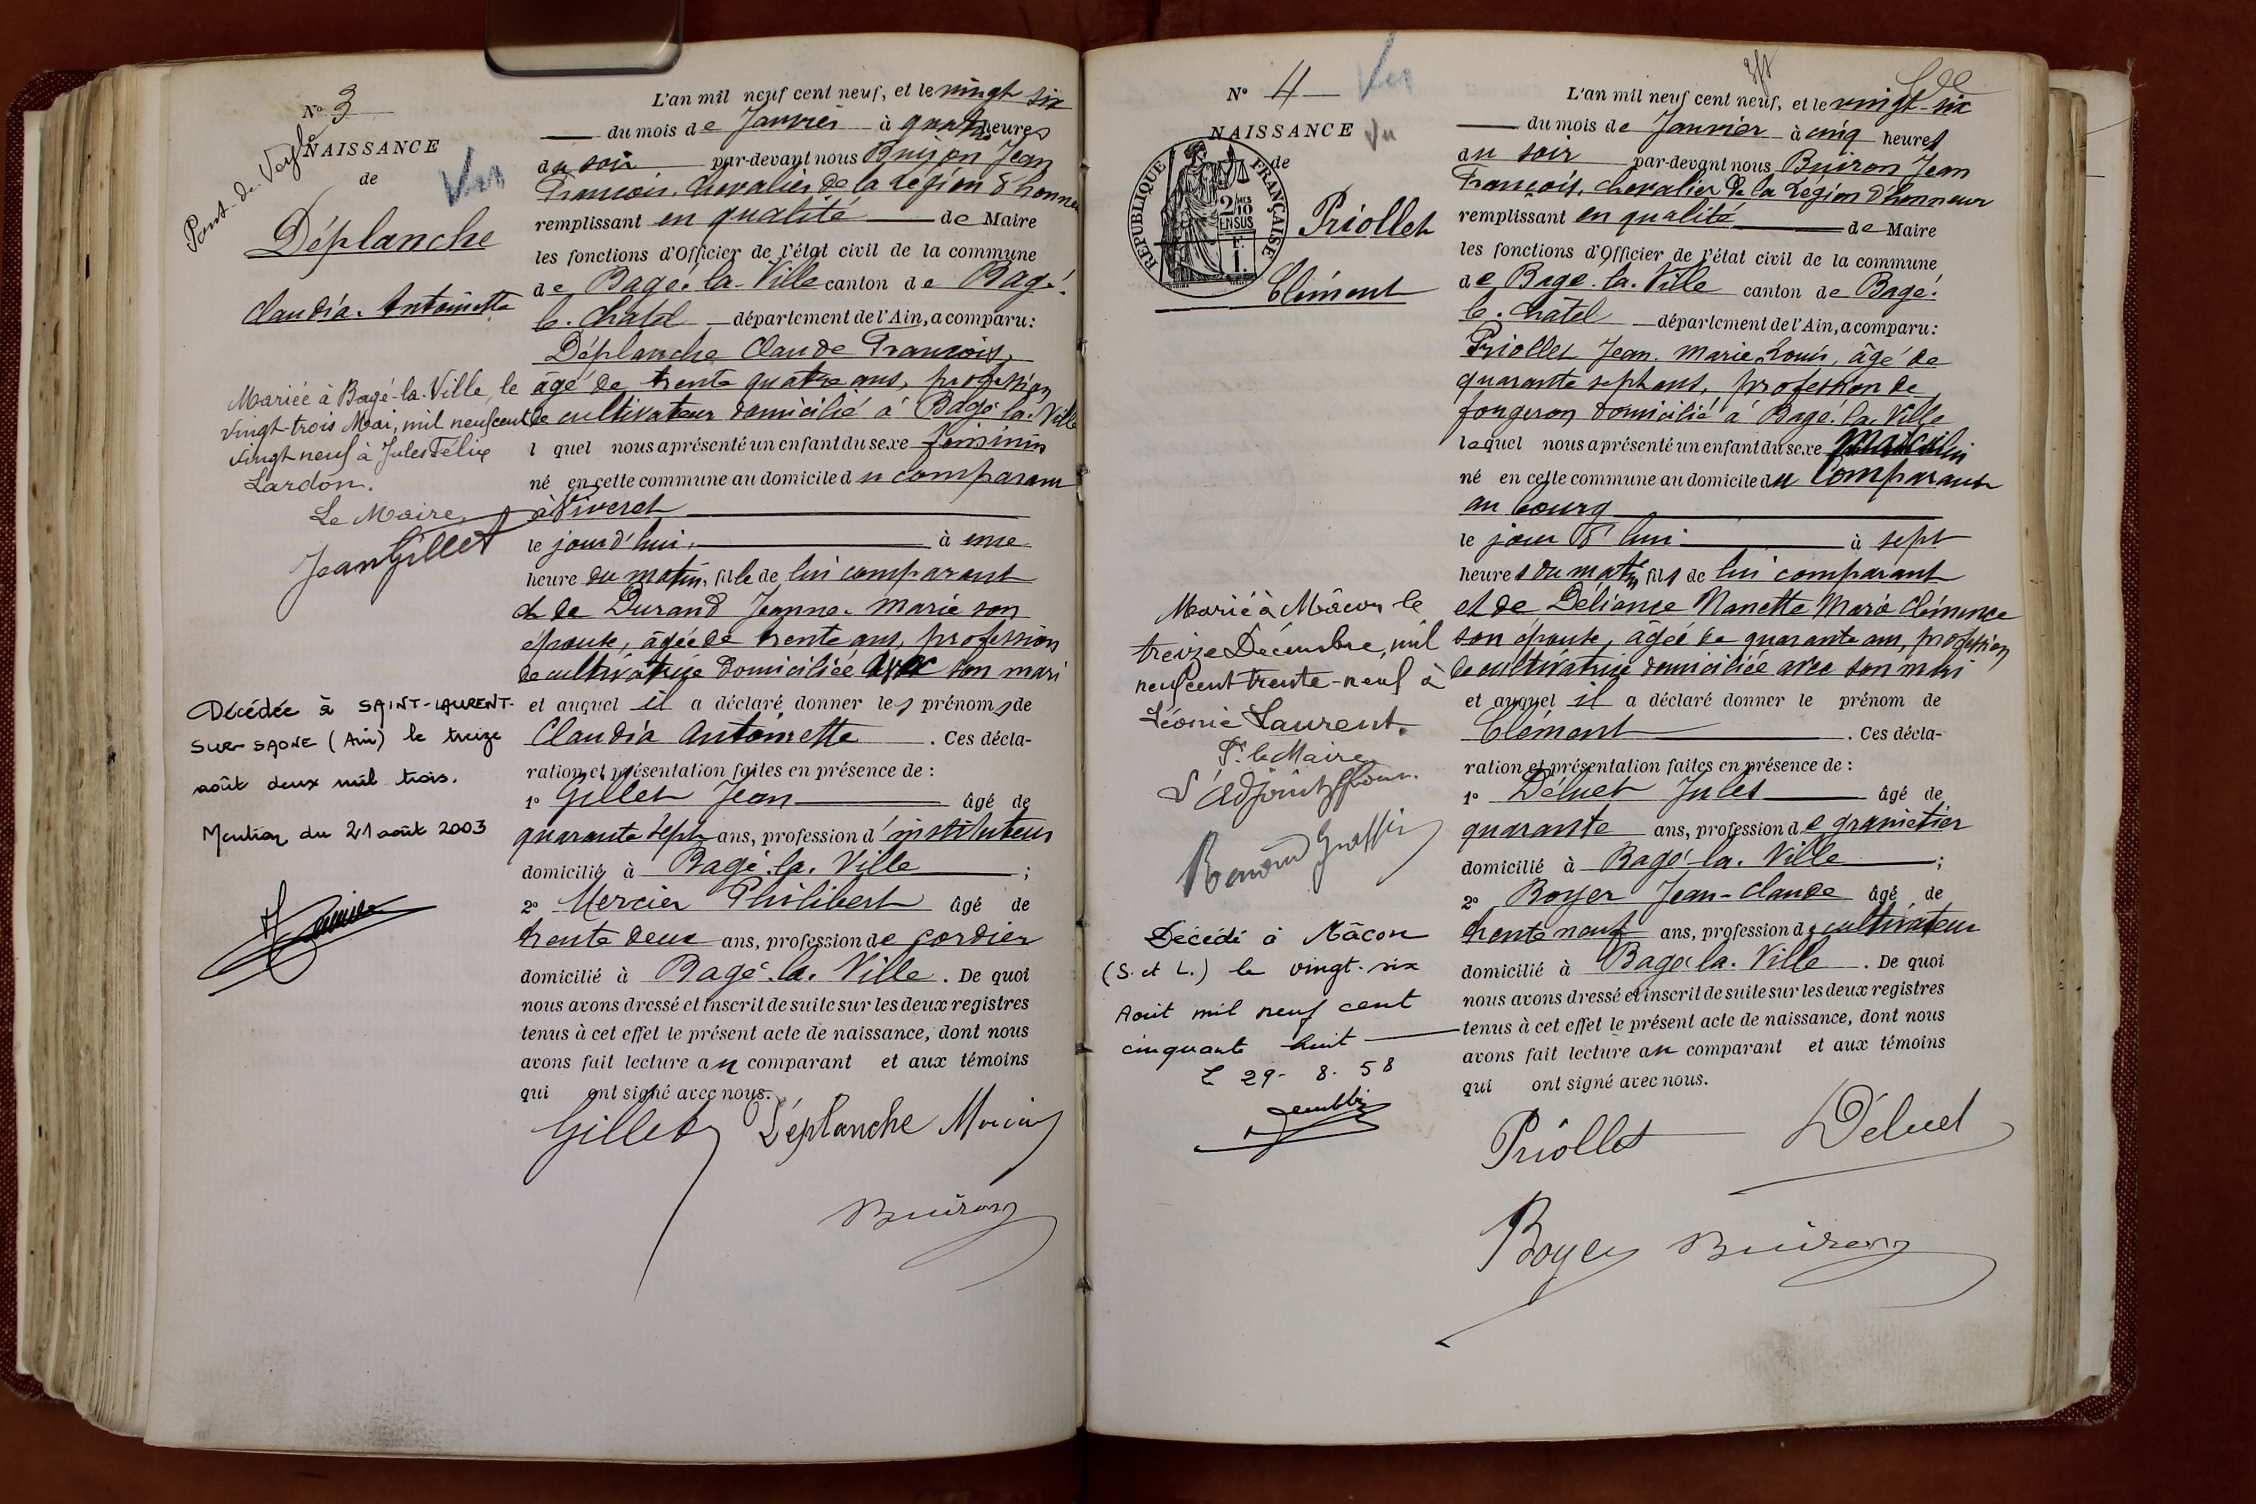 Nº 3
NAISSANCE
de
Vu
Pont-de-Veyle
Déplanche
Claudia Antoinette
Mariée à Bagé-la-Ville, le
vingt-trois Mai, mil neuf cent
vingt neuf à Jules Félix
Lardon.
Le Maire,
Jean Gillet
Décédée à SAINT-LAURENT-
SUR-SAONE (Ain) le treize
août deux mil trois.
Mention du 21 août 2003
L'an mil neuf cent neuf, et le vingt six
du mois de Janvier à quatre heures
du soir par-devant nous Buiron Jean
François, chevalier de la Légion d'honneur
remplissant en qualité de Maire
les fonctions d'Officier de l'état civil de la commune
de Bagé-la-Ville canton de Bagé-
le-Chatel département de l'Ain, a comparu :
Déplanche Claude François,
âgé de trente quatre ans, profession
de cultivateur domicilié à Bagé la Ville
l quel nous a présenté un enfant du sexe féminin
né en cette commune au domicile du comparant
à
le jour d'hui, à une
heure du matin, fille de lui comparant
et de Durand Jeanne-Marie son
épouse, âgée de trente ans, profession
de cultivatrice domiciliée avec son mari
et auquel il a déclaré donner les prénoms de
Claudia Antoinette . Ces décla-
ration et présentation faites en présence de :
1º Gillet Jean âgé de
quarante sept ans, profession d'instituteur
domicilié à Bagé-la-Ville ;
2º Mercier Philibert âgé de
trente deux ans, profession de cordier
domicilié à Bagé-la-Ville . De quoi
nous avons dressé et inscrit de suite sur les deux registres
tenus à cet effet le présent acte de naissance, dont nous
avons fait lecture au comparant et aux témoins
qui ont signé avec nous.
Gillet Déplanche Mercier
Buiron
Nº 4
Vu
NAISSANCE
Vu
de
RÉPUBLIQUE FRANÇAISE
2/10
EN SUS
Priollet
Clément
Marié à Mâcon le
treize Décembre, mil
neuf cent trente-neuf à
Léonie Laurent.
Pr le Maire
L'Adjoint
Décédé à Mâcon
(S. et L.) le vingt-six
Aout mil neuf cent
cinquante huit
L 29-8-58
L'an mil neuf cent neuf, et le vingt-six
du mois de Janvier à cinq heures
du soir par-devant nous Buiron Jean
François, chevalier de la Légion d'honneur
remplissant en qualité de Maire
les fonctions d'Officier de l'état civil de la commune
de Bagé-la-Ville canton de Bagé-
le-Châtel département de l'Ain, a comparu :
Priollet Jean-Marie Louis, âgé de
quarante sept ans, profession de
forgeron domicilié à Bagé-la-Ville
lequel nous a présenté un enfant du sexe masculin
né en cette commune au domicile du Comparant
au bourg
le jour d'hui à sept
heures du matin fils de lui comparant
et de Déliance Nanette Marie Clémence
son épouse, âgée de quarante ans, profession
de cultivatrice domiciliée avec son mari
et auquel il a déclaré donner le prénom de
Clément . Ces décla-
ration et présentation faites en présence de :
1º Déluet Jules âgé de
quarante ans, profession de grainetier
domicilié à Bagé-la-Ville ;
2º Boyer Jean-Claude âgé de
trente neuf ans, profession de cultivateur
domicilié à Bagé-la-Ville . De quoi
nous avons dressé et inscrit de suite sur les deux registres
tenus à cet effet le présent acte de naissance, dont nous
avons fait lecture au comparant et aux témoins
qui ont signé avec nous.
Priollet Déluet
Boyer Buiron